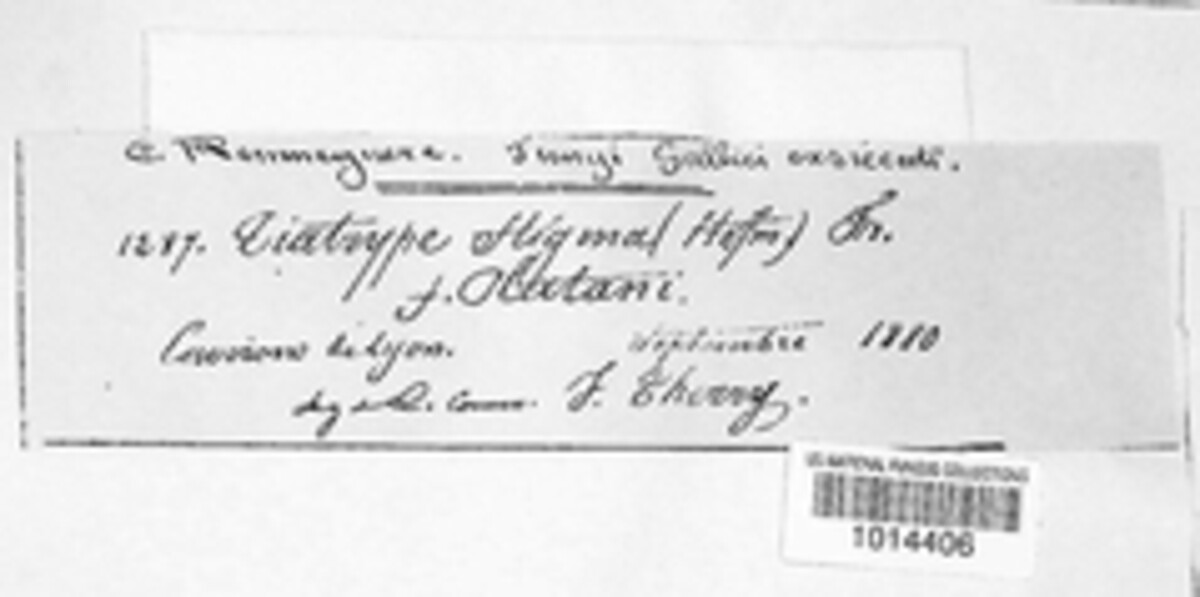 C. Roumeguere. Fungi Gallici exsiccati.
1287. Diatrype Stigma (Hoffm) Fr.
f. Platani.
Environs de Lyon. Septembre 1880
leg. Comm. F. Therry.
US NATIONAL FUNGUS COLLECTIONS
1014406